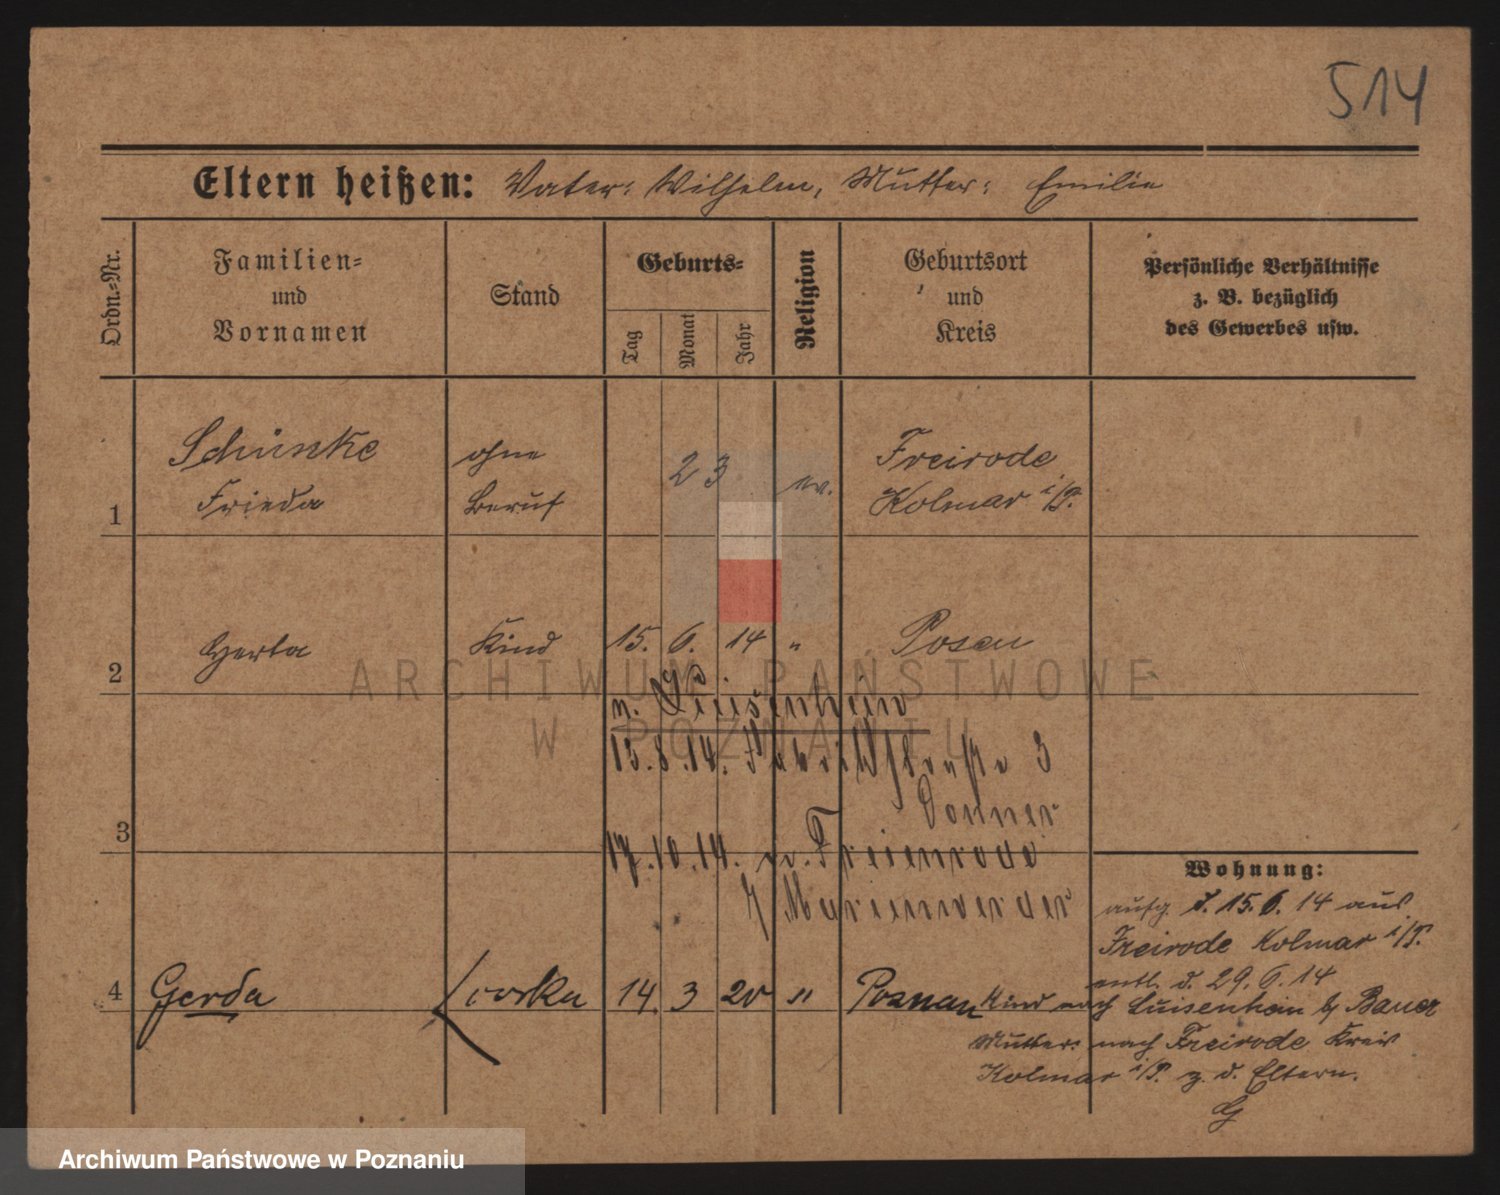 514
Eltern heißen: Vater: Wilhelm, Mutter: Emilie
Ordn.-Nr.
Familien-
und
Vornamen
Stand
Geburts-
Tag
Monat
Jahr
Religion
Geburtsort
und
Kreis
Persönliche Verhältnisse
z. B. bezüglich
des Gewerbes usw.
1
Schünke
Frieda
ohne
Beruf
23
ev.
Freirode
Kolmar i/P.
2
Gerta
Kind
15. 6. 14
"
Posen
n. Luisenhein
13.8.14. 3
Donner
3
17.10.14. Freienrode
Marienwerder
4
Gerda
corka
14. 3 20
"
Poznan
Wohnung:
aufg. d. 15.6.14 aus
Freirode Kolmar i/P.
entl. d. 29.6.14
Kind nach Luisenhain b/ Bauer
Mutter: nach Freirode Kreis
Kolmar i/P. z. d. Eltern.
ARCHIWUM PAŃSTWOWE
W POZNANIU
Archiwum Państwowe w Poznaniu